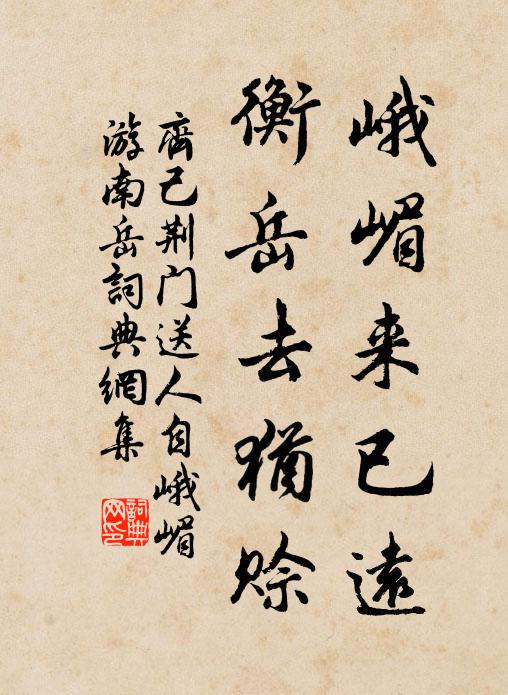 峨嵋来已遠
衡岳去猶赊
齊己荆门送人自峨嵋
游南岳詞典網集
詞典
网印